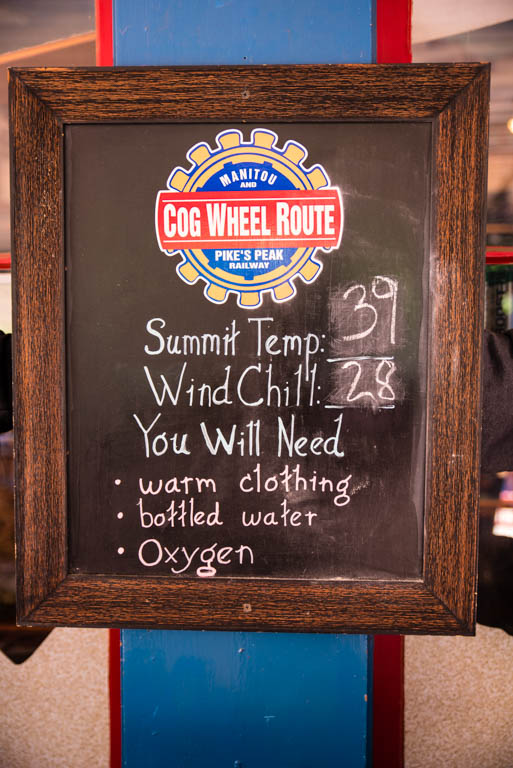 MANITOU
AND
COG WHEEL ROUTE
PIKE'S PEAK
RAILWAY
Summit Temp: 39
Wind Chill: 28
You Will Need
• warm clothing
• bottled water
• Oxygen